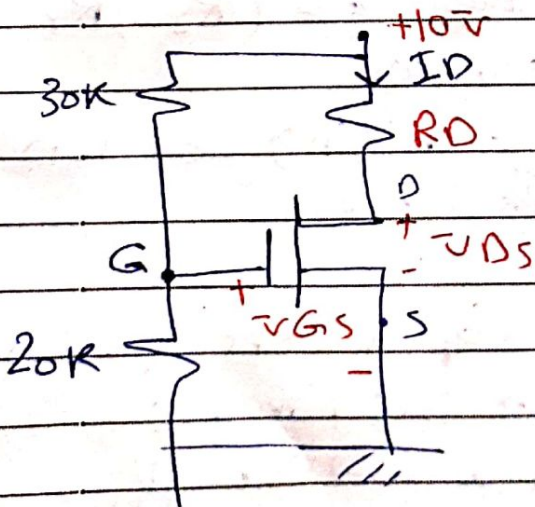 +10V
30K
ID
RD
D
+
VDS
-
G
+
VGS
S
-
20K